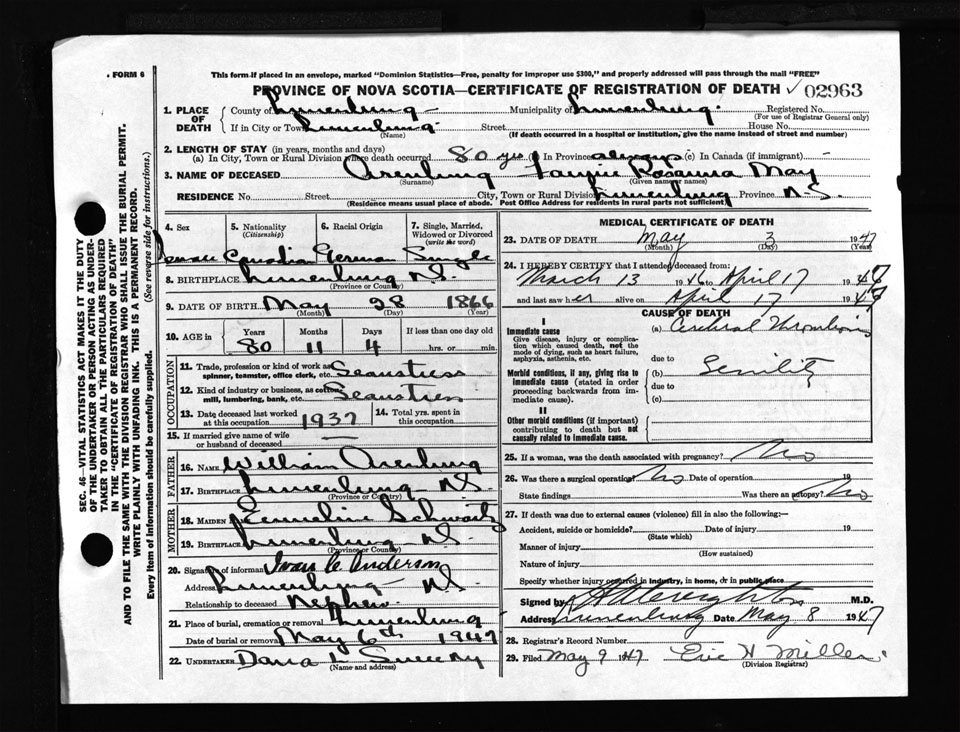 FORM 6
This form if placed in an envelope, marked "Dominion Statistics—Free, penalty for improper use $300," and properly addressed will pass through the mail "FREE"
PROVINCE OF NOVA SCOTIA—CERTIFICATE OF REGISTRATION OF DEATH ✓ 02963
SEC. 46—VITAL STATISTICS ACT MAKES IT THE DUTY
OF THE UNDERTAKER OR PERSON ACTING AS UNDER-
TAKER TO OBTAIN ALL THE PARTICULARS REQUIRED
IN THE "CERTIFICATE OF REGISTRATION OF DEATH"
AND TO FILE THE SAME WITH THE DIVISION REGISTRAR WHO SHALL ISSUE THE BURIAL PERMIT.
WRITE PLAINLY WITH UNFADING INK. THIS IS A PERMANENT RECORD.
Every item of information should be carefully supplied. (See reverse side for instructions.)
1. PLACE OF DEATH
County of Lunenburg Municipality of Lunenburg Registered No.
(For use of Registrar General only)
If in City or Town Lunenburg Street House No.
(Name) (If death occurred in a hospital or institution, give the name instead of street and number)
2. LENGTH OF STAY (in years, months and days)
(a) In City, Town or Rural Division where death occurred 80 yrs (b) In Province always (c) In Canada (if immigrant)
3. NAME OF DECEASED Arenburg Rosanna May
(Surname) (Given name or names)
RESIDENCE No. Street City, Town or Rural Division Lunenburg Province N.S.
(Residence means usual place of abode. Post Office Address for residents in rural parts not sufficient)
4. Sex 5. Nationality (Citizenship) 6. Racial Origin 7. Single, Married, Widowed or Divorced (write the word)
Female Canadian German Single
8. BIRTHPLACE Lunenburg N.S.
(Province or County)
9. DATE OF BIRTH May 28 1866
(Month) (Day) (Year)
10. AGE in Years Months Days If less than one day old
80 11 4 hrs. or min.
OCCUPATION
11. Trade, profession or kind of work as spinner, teamster, office clerk, etc. Seamstress
12. Kind of industry or business, as cotton mill, lumbering, bank, etc. Seamstress
13. Date deceased last worked at this occupation 1937 14. Total yrs. spent in this occupation
15. If married give name of wife or husband of deceased —
FATHER
16. NAME William Arenburg
17. BIRTHPLACE Lunenburg N.S.
(Province or Country)
MOTHER
18. MAIDEN NAME Emmeline Schwartz
19. BIRTHPLACE Lunenburg N.S.
(Province or Country)
20. Signature of informant Ivan C. Anderson
Address Lunenburg N.S.
Relationship to deceased Nephew
21. Place of burial, cremation or removal Lunenburg
Date of burial or removal May 6th 1947
22. UNDERTAKER Dana L Sweeny
(Name and address)
MEDICAL CERTIFICATE OF DEATH
23. DATE OF DEATH May 2 1947
(Month) (Day) (Year)
24. I HEREBY CERTIFY that I attended deceased from:
March 13 1946 to April 17 1947
and last saw her alive on April 17 1947
CAUSE OF DEATH
I
Immediate cause
Give disease, injury or complication which caused death, not the mode of dying, such as heart failure, asphyxia, asthenia, etc.
(a) Cerebral Thrombosis
due to
Morbid conditions, if any, giving rise to immediate cause (stated in order proceeding backwards from immediate cause).
(b) Senility
due to
(c)
II
Other morbid conditions (if important) contributing to death but not causally related to immediate cause.
25. If a woman, was the death associated with pregnancy? No
26. Was there a surgical operation? No Date of operation 19
State findings Was there an autopsy? No
27. If death was due to external causes (violence) fill in also the following:—
Accident, suicide or homicide? Date of injury 19
(State which)
Manner of injury
(How sustained)
Nature of injury
Specify whether injury occurred in industry, in home, or in public place
Signed by Creighton M.D.
Address Lunenburg Date May 8 1947
28. Registrar's Record Number
29. Filed May 9 1947 Eric H Miller
(Division Registrar)